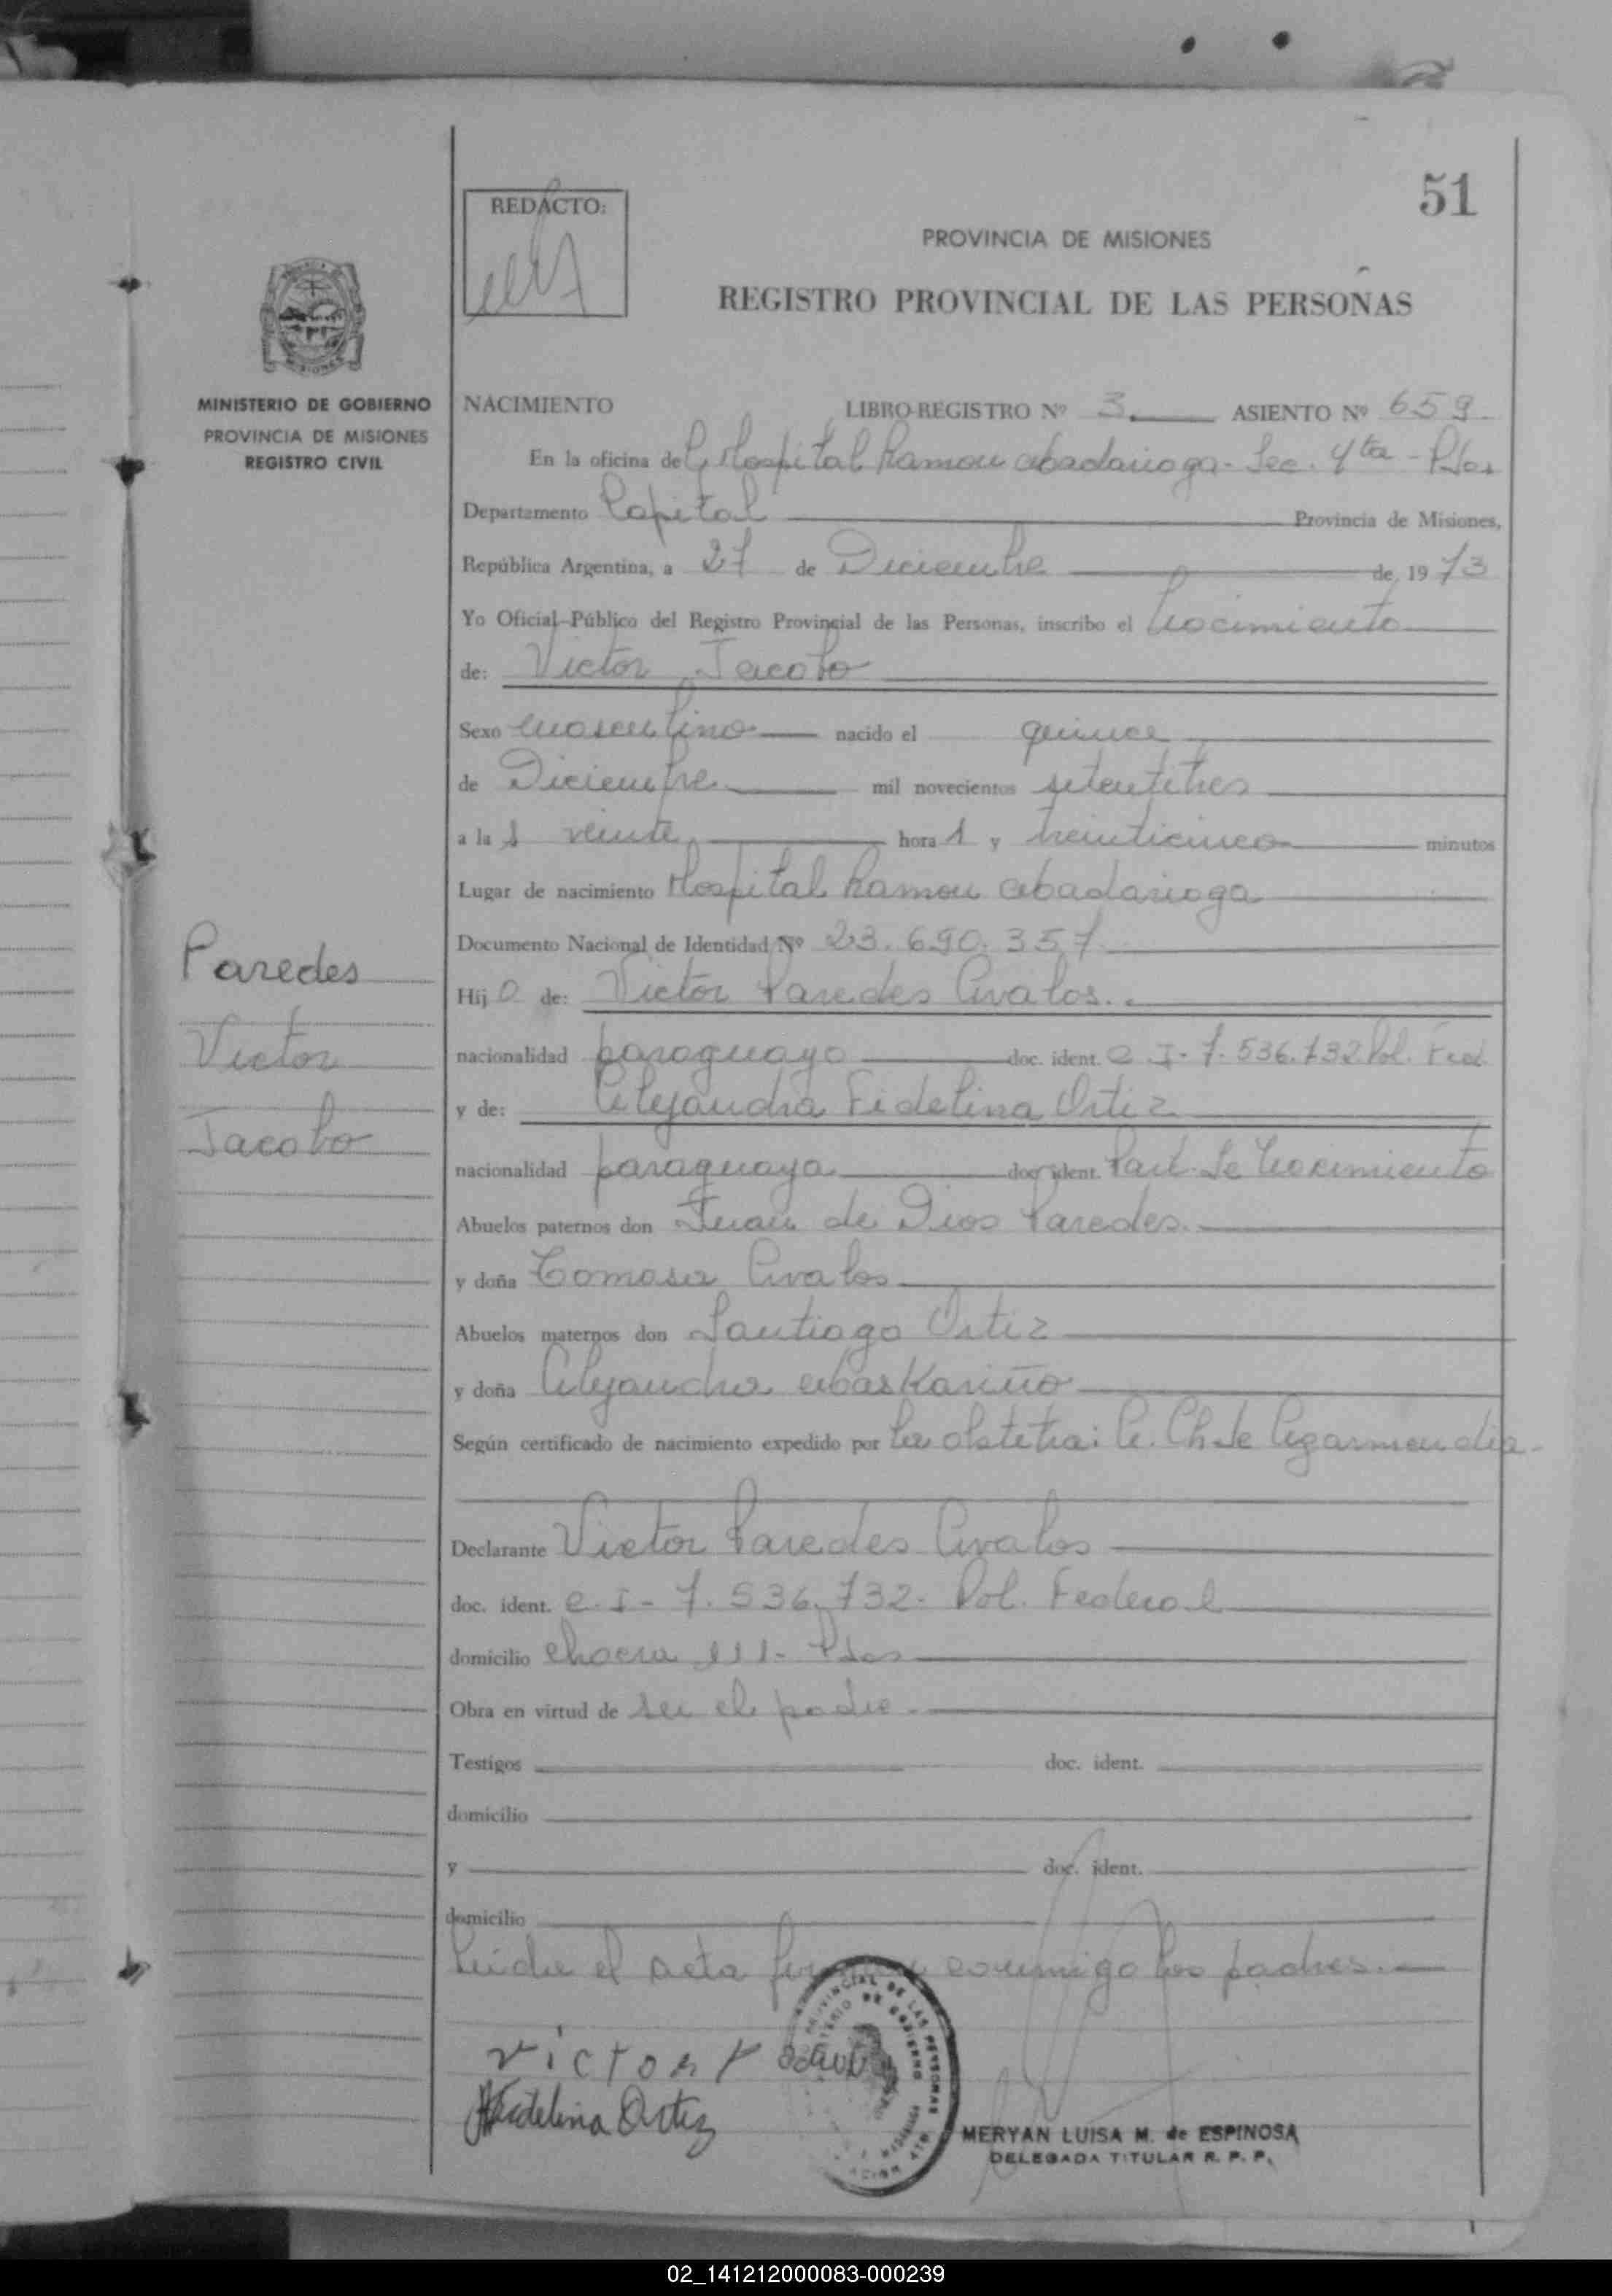 51
REDACTO:
PROVINCIA DE MISIONES
REGISTRO PROVINCIAL DE LAS PERSONAS
MINISTERIO DE GOBIERNO
PROVINCIA DE MISIONES
REGISTRO CIVIL
NACIMIENTO LIBRO-REGISTRO Nº 3 ASIENTO Nº 659
En la oficina del Hospital Ramon Abadarioga - Sec. 4ta - Pdas
Departamento Capital Provincia de Misiones,
República Argentina, a 27 de Diciembre de 1973
Yo Oficial Público del Registro Provincial de las Personas, inscribo el nacimiento
de: Victor Jacobo
Sexo masculino nacido el quince
de Diciembre mil novecientos setentitres
a las veinte hora s y treinticinco minutos
Lugar de nacimiento Hospital Ramon Abadarioga
Documento Nacional de Identidad Nº 23.690.357
Paredes
Victor
Jacobo
Hijo de: Victor Paredes Avalos.
nacionalidad paraguayo doc. ident. C.I- 7.536.732 Pol. Fed.
y de: Alejandra Fidelina Ortiz
nacionalidad paraguaya doc. ident. Part. de nacimiento
Abuelos paternos don Juan de Dios Paredes.
y doña Tomasa Avalos
Abuelos maternos don Santiago Ortiz
y doña Alejandra
Según certificado de nacimiento expedido por la obstetra: A. Ch de Agarmendia-
Declarante Victor Paredes Avalos
doc. ident. C.I- 7.536.732- Pol. Federal
domicilio chacra 111- Pdas
Obra en virtud de ser el padre.
Testigos doc. ident.
domicilio
y doc. ident.
domicilio
Leída el acta firman conmigo los padres.
victor P
Fidelina Ortiz
PROVINCIAL DE LAS PERSONAS
MINISTERIO DE GOBIERNO
MERYAN LUISA M. de ESPINOSA
DELEGADA TITULAR R. P. P.
02_141212000083-000239